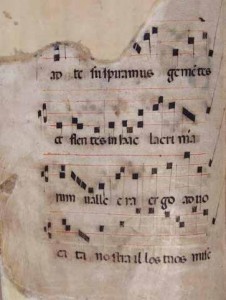 ad te suspiramus gemētes
et flentes in hac lacrima
rum valle era ergo advo
cata nostra illos tuos mise